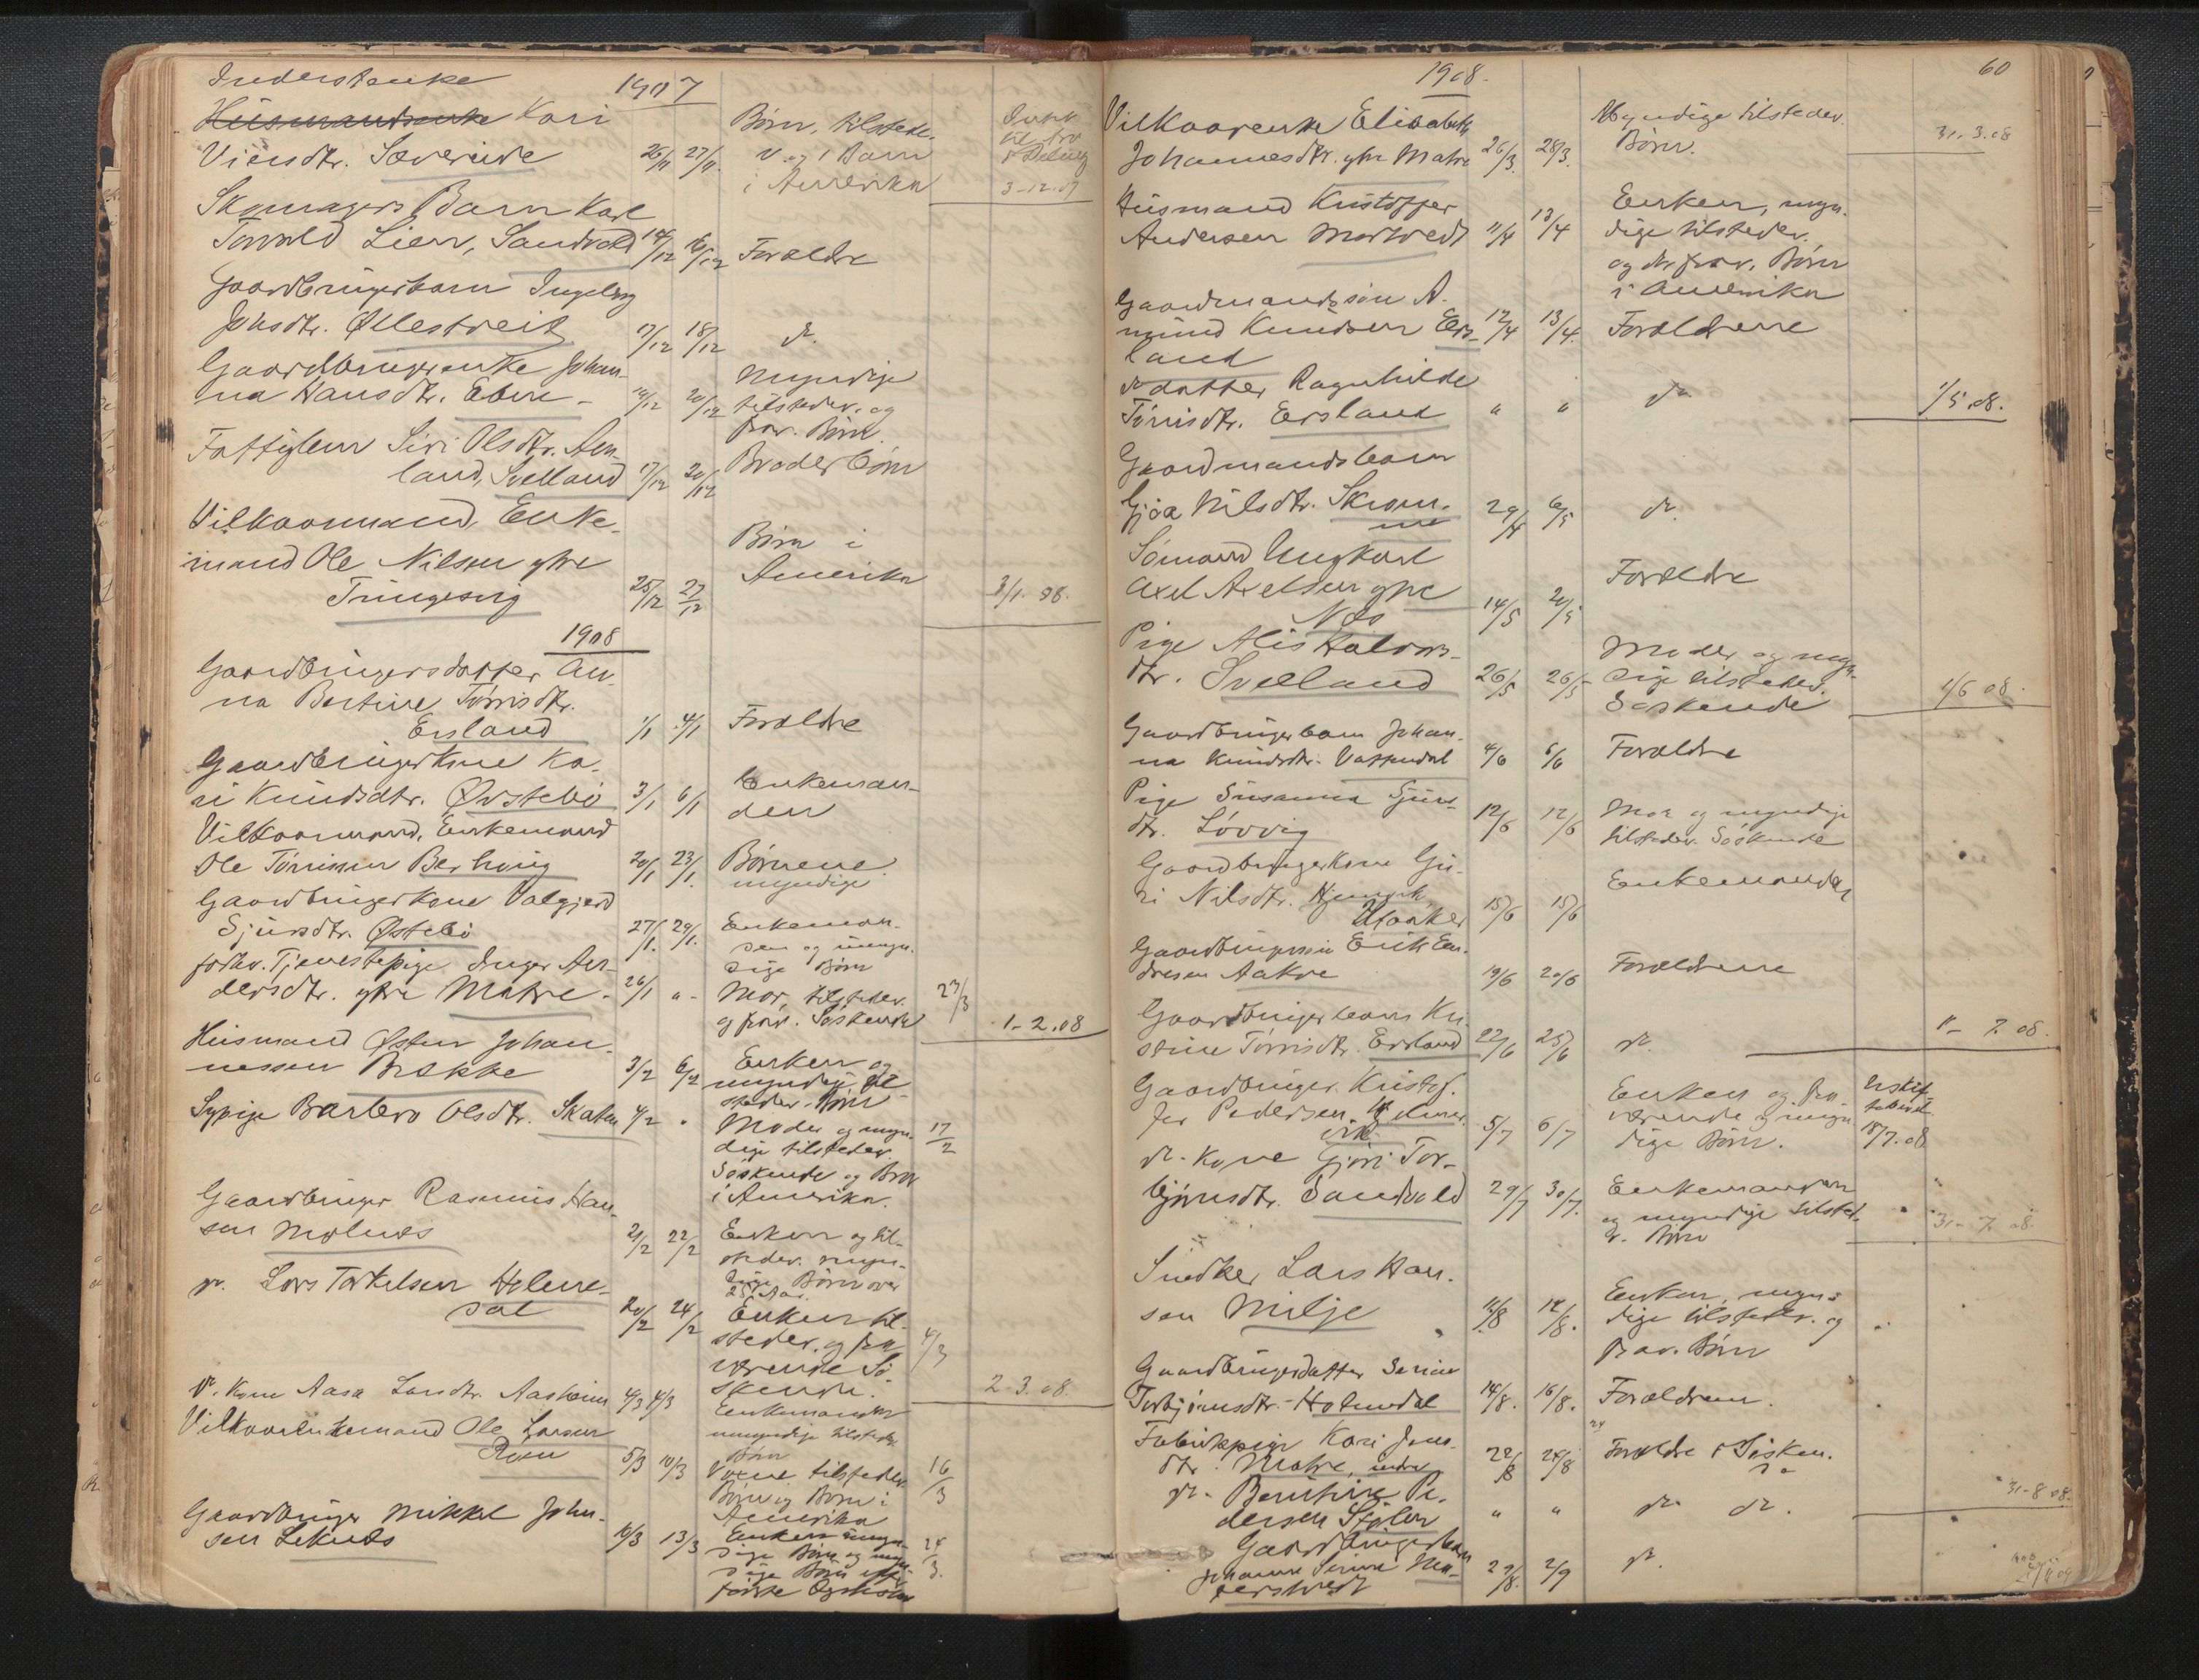 1907
Inderstenke
Husmandsenke Kari
Viensdtr. Sæverude 26/11 27/11. Børn, tilstede
v. og 1 Barn
i Amerika 3-12.07
Skomagers Barn Karl
Torvald Lien, Sandvold 14/12 16/12 Forældre
Gaardbrugerbarn Ingeborg
Johsdtr. Øllestveit 17/12 18/12 do.
Gaardbrugerenke Johan-
na Hansdtr. Ebne - 19/12 20/12 Myndige
tilstedev. og
frav. Børn
Fattiglem Siri Olsdtr. Aen-
land, Svelland 17/12 20/12 Broderbørn
Vilkaarmand, Enke-
mand Ole Nilsen ytre
Tungesvig 25/12 27/12 Børn i
Amerika 3/1. 08.
1908
Gaardbrugersdatter An-
na Bertine Tørrisdtr.
Ersland 1/1 4/1 Forældre
Gaardbrugerkone Ka-
ri Knudsdtr. Østebø 3/1 6/1 Enkeman-
den
Vilkaarmand, Enkemand
Ole Tørrisen Berhoug 20/1 23/1. Børnene
myndige
Gaardbrugerkone Valgjerd
Sjursdtr. Østebø 27/1. 29/1. Enkeman-
den og umyn-
dige Børn
forhv. Tjenestepige Inger An-
dersdtr. ytre Matre - 26/1 " - Mor, tilstedev.
og frav. Søskende 23/3 1-2.08
Husmand Østen Johan-
nessen Brække 3/2 6/2 Enken og
myndige til-
stedev. Børn
Sypige Barbro Olsdtr. Skaten 4/2 " Moder og myn-
dige tilstedev.
Søskende og Bror
i Amerika. 17/2
Gaardbruger Rasmus Han-
sen Molnes 21/2 22/2 Enken og til-
stedev. myn-
dige Børn over
25 Aar.
do. Lars Torkelsen Helene-
dal 20/2 24/2 Enken til-
stedev. og fra-
værende Sø-
skende. 4/3 2-3.08.
do. Kone Aasa Larsdtr. Aasheim 4/3 4/3 Enkemanden
umyndige tilstedev.
Børn
Vilkaarenkemand Ole Larsen
Røen 5/3 10/3 Voxne tilstedev.
Børn og Børn i
Amerika 16/3
Gaardbruger Mikkel John-
sen Leknes 10/3 13/3 Enken umyn-
dige Børn og myn-
dige Børn efter
første Ægteskab 24/3.
1908. 60
Vilkaarenke Elisabeth
Johannesdtr. ytre Matre 26/3. 28/3. Myndige tilstedev.
Børn. 31.3.08
Husmand Kristoffer
Andersen Mortvedt 11/4 13/4 Enken, myn-
dige tilstedev.
og do. frav. Børn
i Amerika
Gaardmandssøn A-
mund Knudsen Ers-
land 12/4 13/4. Forældrene
do datter Ragnhilde
Tørrisdtr. Ersland " " do. 1/5.08.
Gaardmandsbarn
Gjøa Nilsdtr. Skrom-
me 29/4 6/5 do.
Sømand Ungkarl
Axel Axelsen ytre
Nes 14/5 20/5 Forældre
Pige Alis Halvors-
dtr. Svelland 26/5 26/5 Moder og myn-
dige tilstedev.
Søskende 1/6 08.
Gaardbrugerbarn Johan-
na Knudsdtr. Vassendal 4/6 5/6 Forældre
Pige Susanna Sjurs-
dtr. Løvvig 12/6 12/6 Mor og myndige
tilstedev. Søskende
Gaardbrugerkone Gu-
ri Nilsdtr. Utaaker 15/6 15/6 Enkemanden
Gaardbrugersøn Erik En-
dresen Aakre 19/6 20/6 Forældrene
Gaardbrugerbarn Kri-
stine Tørrisdtr. Ersland 22/6 25/6 do. 1/- 7. 08.
Gaardbruger Kristof-
fer Pedersen 5/7 6/7 Enken og fra-
værende og myn-
dige Børn. 18/7.08
do. Kone Gjøri Tor-
bjørnsdtr. Sandvold 29/7 30/7. Enkemanden
og myndige tilsted-
v. Børn 31-7.08.
Snedker Lars Han-
sen Milje 11/8 12/8. Enken, myn-
dige tilstedev. og
frav. Børn
Gaardbrugerdatter Serine
Torbjørnsdtr. Holmedal 14/8. 16/8. Forældrene.
Fabrikpige Kari Jens-
dtr. Matre, indre 22/8 24/8 Forældre & Sisken-
de
do. Berntine Pe-
dersen Stølen " " do do. 31-8 08.
Gaardbrugerbarn
Johanne Serine 29/8. 2/9 do.